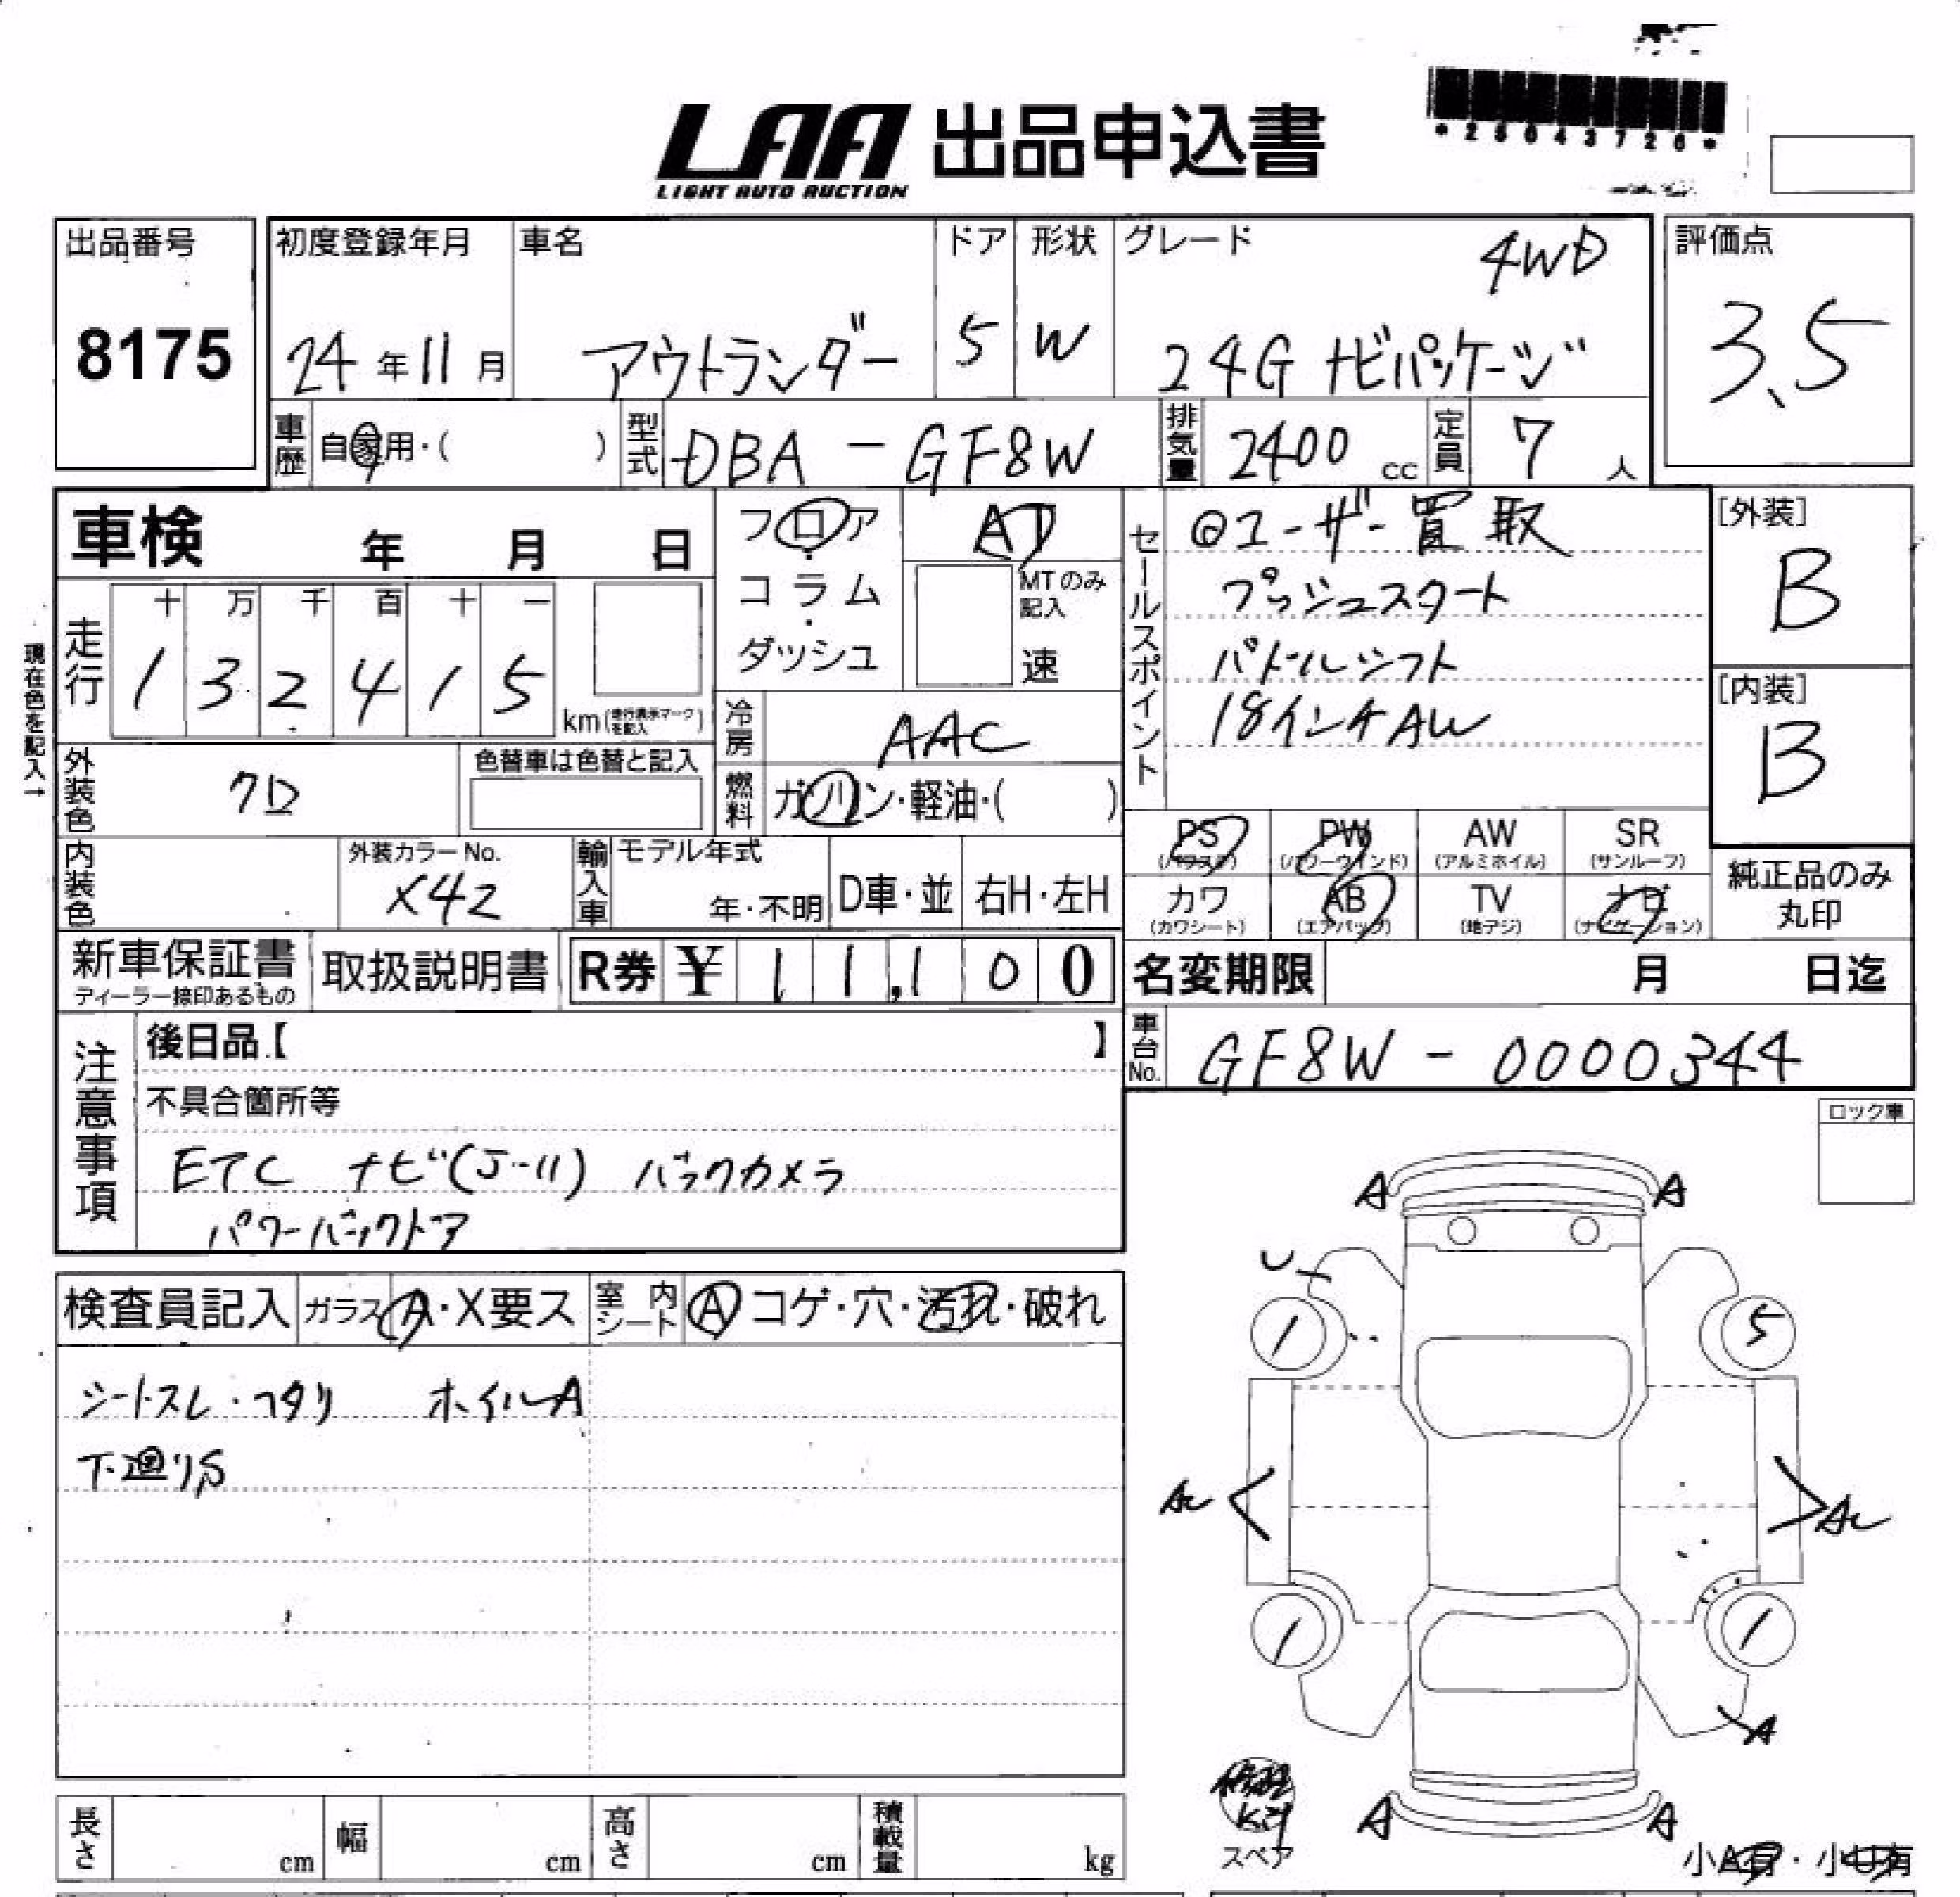 *25043726*
LAA 出品申込書
LIGHT AUTO AUCTION
出品番号
8175
初度登録年月
24年11月
車名
アウトランダー
ドア
5
形状
W
グレード
4WD
24G ナビパッケージ
評価点
3.5
車歴
自家用・( )
型式
DBA-GF8W
排気量
2400 cc
定員
7人
車検 年 月 日
フロア・コラム・ダッシュ
AT
MTのみ記入
速
セールスポイント
◎ユーザー買取
プッシュスタート
パドルシフト
18インチAW
[外装]
B
[内装]
B
現在色を記入→
走行
十 万 千 百 十 一
1 3 2 4 1 5
km(走行表示マークを記入)
冷房
AAC
燃料
ガソリン・軽油・( )
外装色
色替車は色替と記入
内装色
外装カラーNo.
X42
輸入車
モデル年式
年・不明
D車・並
右H・左H
PS (パワステ)
PW (パワーウインド)
AW (アルミホイル)
SR (サンルーフ)
カワ (カワシート)
AB (エアバッグ)
TV (地デジ)
ナビ (ナビゲーション)
純正品のみ
丸印
新車保証書
ディーラー捺印あるもの
取扱説明書
R券 ¥ 11,100
名変期限 月 日迄
車台No.
GF8W-0000344
注意事項
後日品【 】
不具合箇所等
ETC ナビ(J-11) バックカメラ
パワーバックドア
ロック車
検査員記入
ガラス A・X要ス
室内シート
A コゲ・穴・汚れ・破れ
シートスレ・ヘタリ ホイルA
下廻りS
A A
U
1 5
1 1
A
A A
スペア
小A有・小U有
長さ cm
幅 cm
高さ cm
積載量 kg